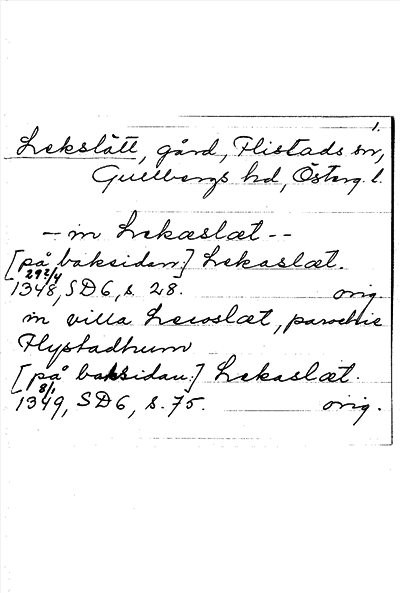 1.
Lekslätt, gård, Flistads sn,
Gullbergs hd, Österg. l.
- in Lekæslæt --
[på baksidan:] Lekaslæt.
29 2/4 1348, SD 6, s. 28. orig.
in villa Lecoslæt, parochie
Flystadhum
[på baksidan:] Lekaslæt.
8/1 1349, SD 6, s. 75. orig.